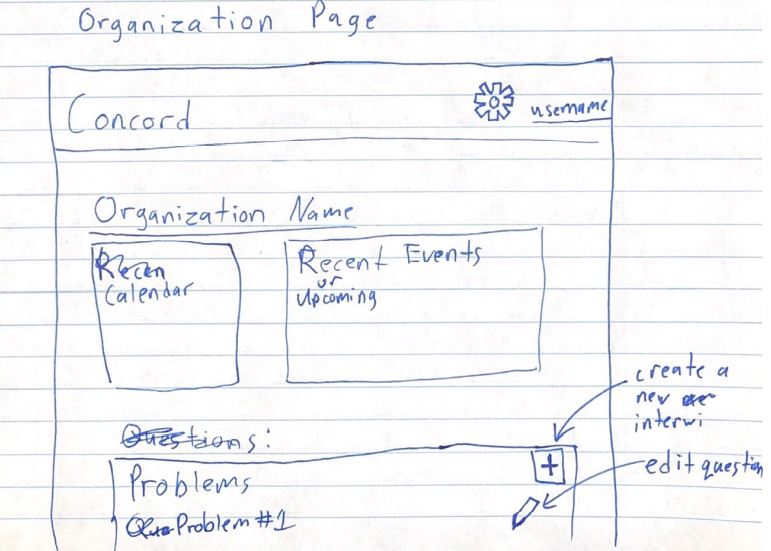 Organization Page
Concord
username
Organization Name
Calendar
Recent Events
or
Upcoming
create a
new
interwi
Questions:
Problems
+
edit question
Problem #1